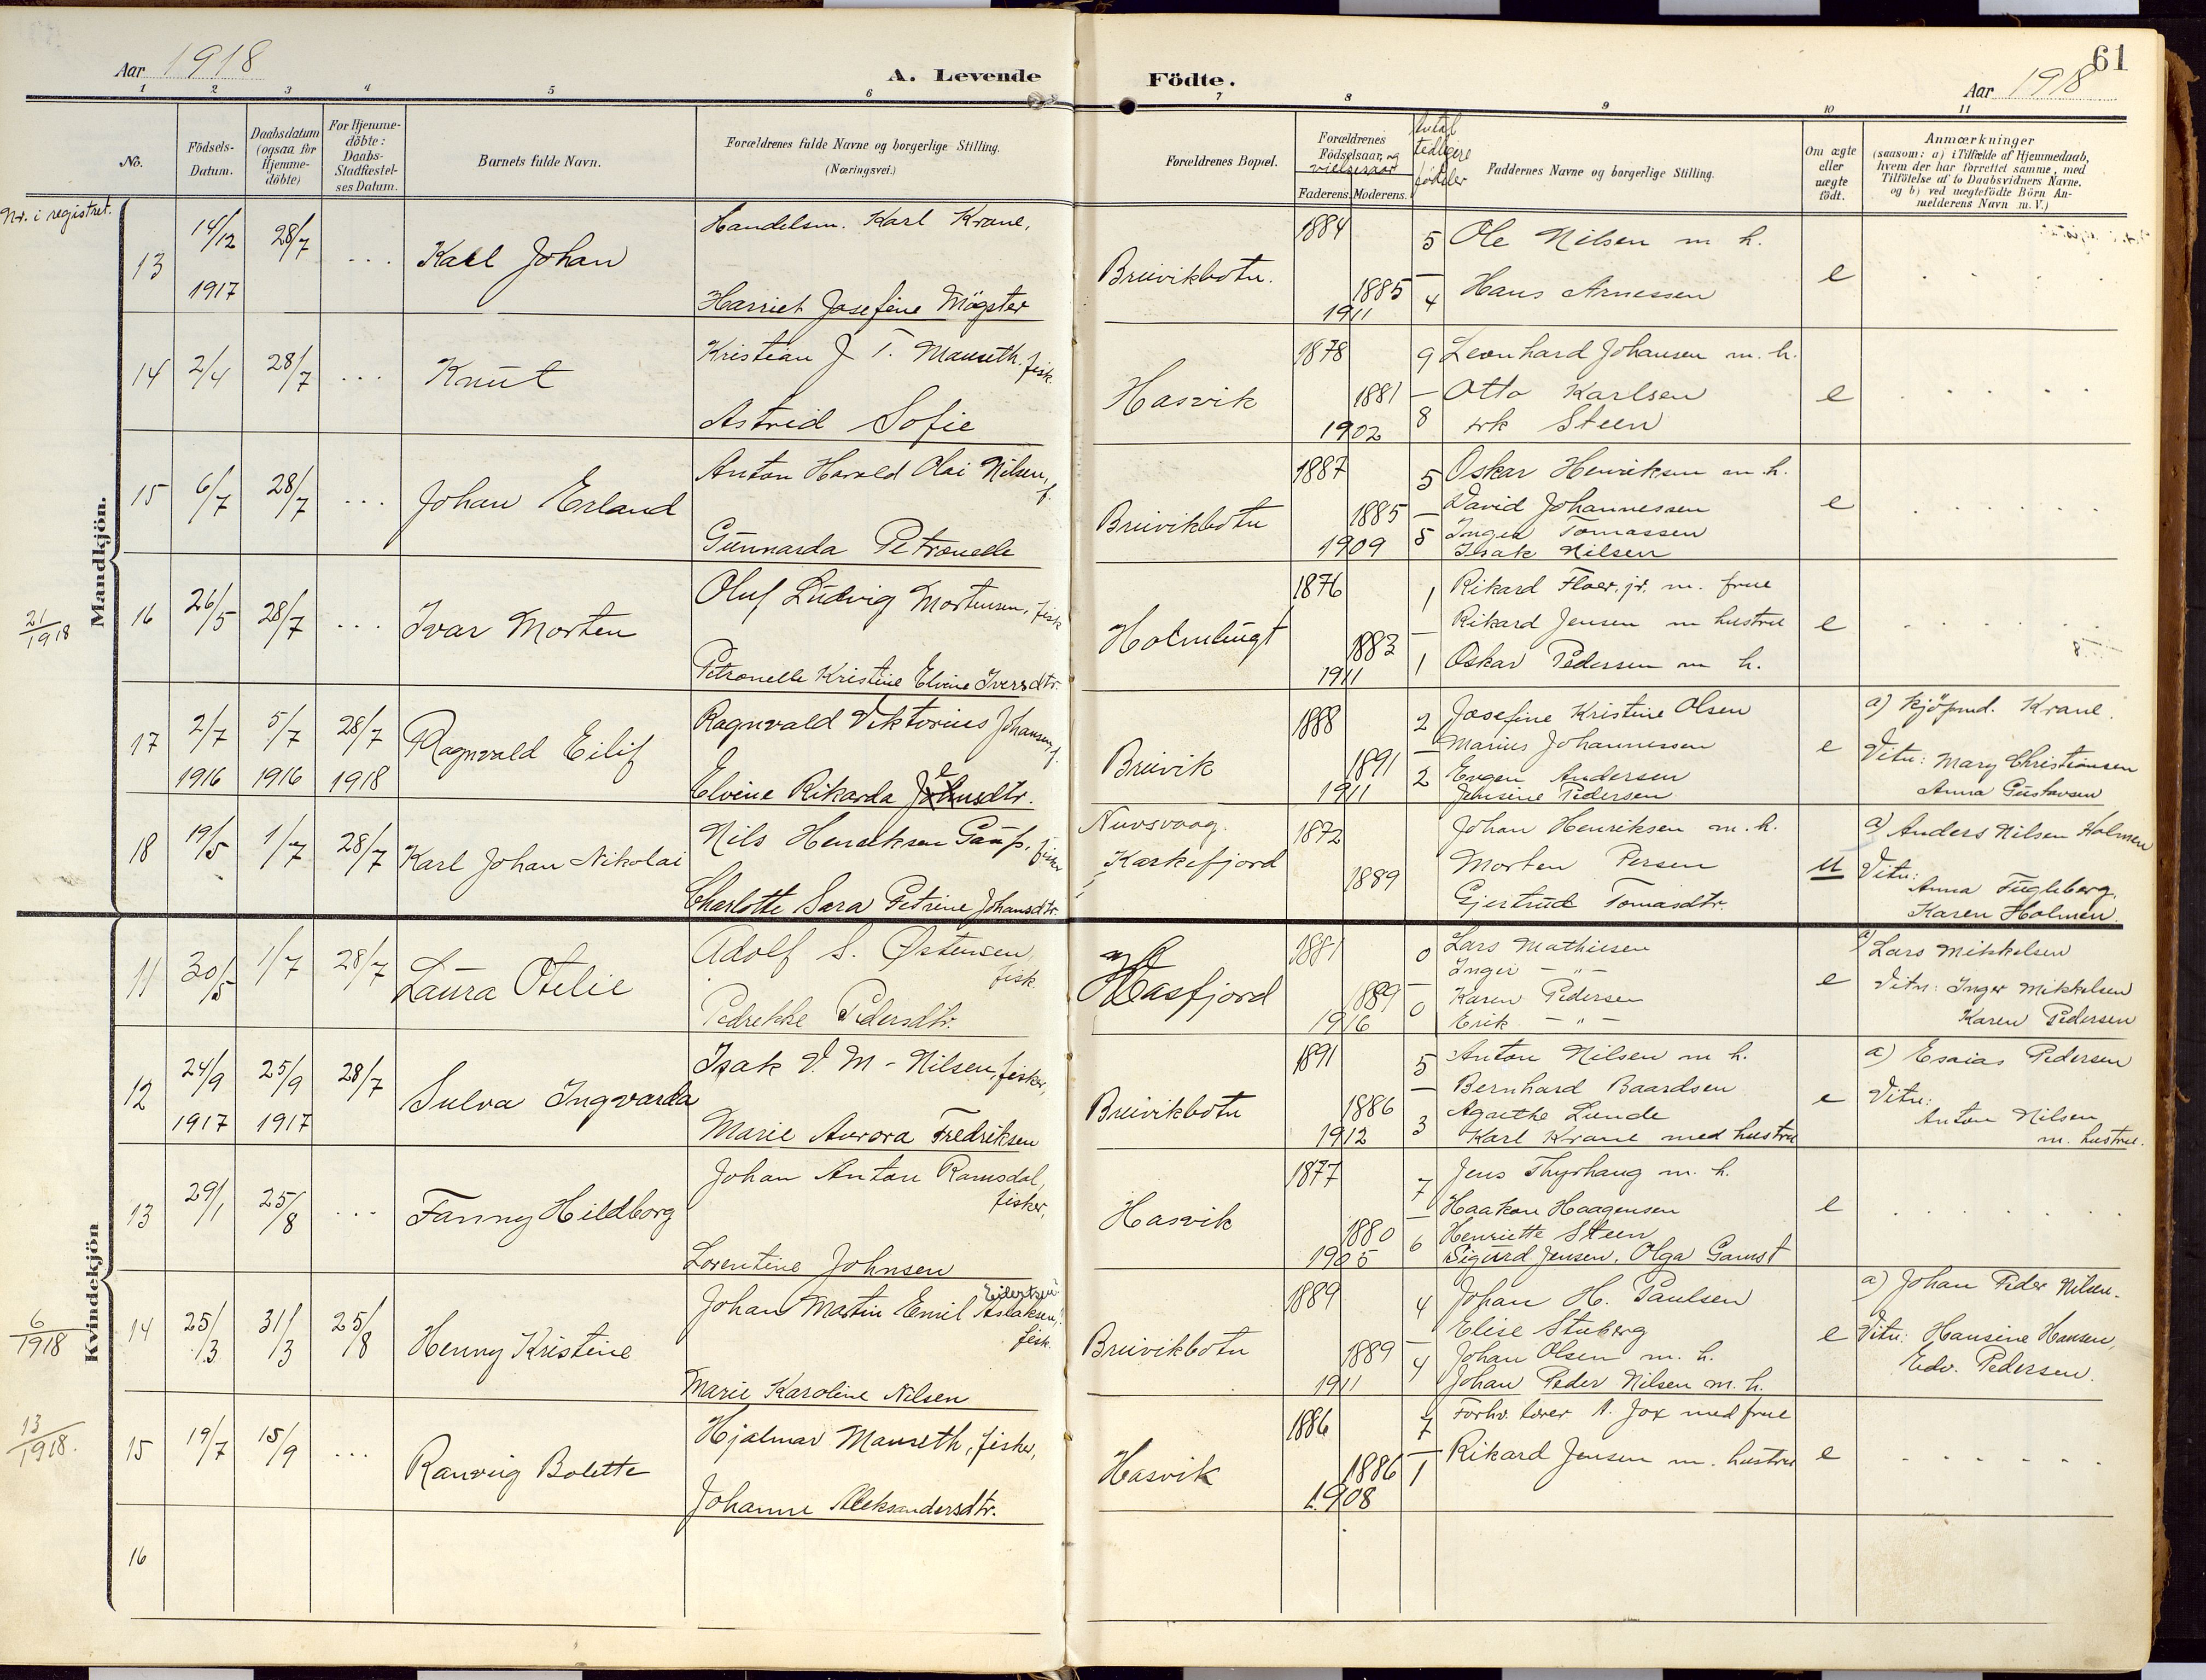 61
Aar 1918
A. Levende
Födte.
Aar 1918
1 2 3 4 5 6 7 8 9 10 11
No.
Födsels-
Datum.
Daabsdatum
(ogsaa for
Hjemme-
döbte)
For Hjemme-
döbte:
Daabs-
Stadfæstel-
ses Datum.
Barnets fulde Navn.
Forældrenes fulde Navne og borgerlige Stilling.
(Næringsvei.)
Forældrenes Bopæl.
Forældrenes
Födselsaar, og
vielsesaar
Faderens. Moderens.
Antal
tidligere
födsler
Faddernes Navne og borgerlige Stilling.
Om ægte
eller
uægte
födt.
Anmærkninger
(saasom: a) i Tilfælde af Hjemmedaab,
hvem der har forrettet samme, med
Tilföielse af to Daabsvidners Navne.
og b) ved uægtefödte Börn An-
melderens Navn m. V.)
Nr. i registret.
Mandkjön.
13
14/12
1917
28/7
...
Karl Johan
Handelsm. Karl Krane,
Harriet Josefine Mögster
Breivikbotn.
1884
1885
1911
5
4
Ole Nilsen m h.
Hans Arnessen
e
14
2/4
28/7
...
Knut
Kristian J. T. Mauseth. fisk.
Astrid Sofie
Hasvik
1878
1881
1902
9
8
Leonhard Johansen m. h.
Otto Karlsen
frk Steen
e
15
6/7
28/7
...
Johan Erland
Anton Harald Olai Nilsen, f.
Gunnarda Petronelle
Breivikbotn
1887
1885
1909
5
5
Oskar Henriksen m. h.
David Johannessen
Inger Tomassen
Isak Nilsen
e
21/1918
16
26/5
28/7
...
Ivar Morten
Oluf Ludvig Mortensen, fisk
Petronelle Kristine Elvine Iversdtr.
Holmbugt
1876
1883
1911
1
1
Rikard Floer. jr. m. frue
Rikard Jensen m hustru
Oskar Pedersen m h.
e
17
2/7
1916
5/7
1916
28/7
1918
Ragnvald Eilif
Ragnvald Viktorius Johansen, f.
Elvine Rikarda Jensdtr.
Breivik
1888
1891
1911
2
2
Josefine Kristine Olsen
Marius Johannessen
Eugen Andersen
Jensine Pedersen
e
a) Kjöpmd. Krane.
Vitn: Mary Christiansen
Anna Gustavsen
18
19/5
1/7
28/7
Karl Johan Nikolai
Nils Henriksen Gaup, fisker
Charlotte Sara Petrine Johansdtr.
Nuvsvaag.
Karkefjord
1872
1889
Johan Henriksen m. h.
Morten Persen
Gjertrud Tomasdtr.
u
a) Anders Nilsen Holmen
Vitn:
Anna Fugleberg,
Karen Holmen.
Kvindekjön
11
30/5
1/7
28/7
Laura Otelie
Adolf S. Østensen,
fisk.
Pedrekke Pedersdtr.
Hasfjord
1881
1889
1916
0
0
Lars Mathiesen
Inger - " -
Karen Pedersen
Erik - " -
e
a) Lars Mikkelsen
Vitn: Inger Mikkelsen
Karen Pedersen
12
24/9
1917
25/9
1917
28/7
Sulva Ingvarda
Isak V. M - Nilsen, fisker,
Marie Aurora Fredriksen
Breivikbotn
1891
1886
1912
5
3
Anton Nilsen m h.
Bernhard Baardsen
Agarthe Lunde
Karl Krane med hustru
e
a) Esaias Pedersen
Vitn:
Anton Nilsen
m. hustru.
13
29/1
25/8
...
Fanny Hildborg
Johan Anton Ramsdal,
fisker,
Lorentine Johnsen
Hasvik
1877
1880
1905
7
6
Jens Thyrhaug m. h.
Haakon Haagensen
Henriette Steen
Sigurd Jensen, Olga Gamst
e
6/1918
14
25/3
31/3
25/8
Henny Kristine
Eilertsen
Johan Martin Emil Aslaksen,
fisk.
Marie Karoline Nilsen
Breivikbotn
1889
1889
1911
4
4
Johan H. Paulsen
Elise Stuberg
Johan Olsen m. h.
Johan Peder Nilsen m. h.
e
a) Johan Peder Nilsen.
Vitn: Hansine Hansen,
Edv. Pedersen.
13/1918.
15
19/7
15/9
...
Ranveig Bolette
Hjalmar Mauseth, fisker,
Johanne Aleksandersdtr.
Hasvik
1886
1886
1908
7
1
Forhv. lærer A. Jox med frue
Rikard Jensen m. hustru
e
16